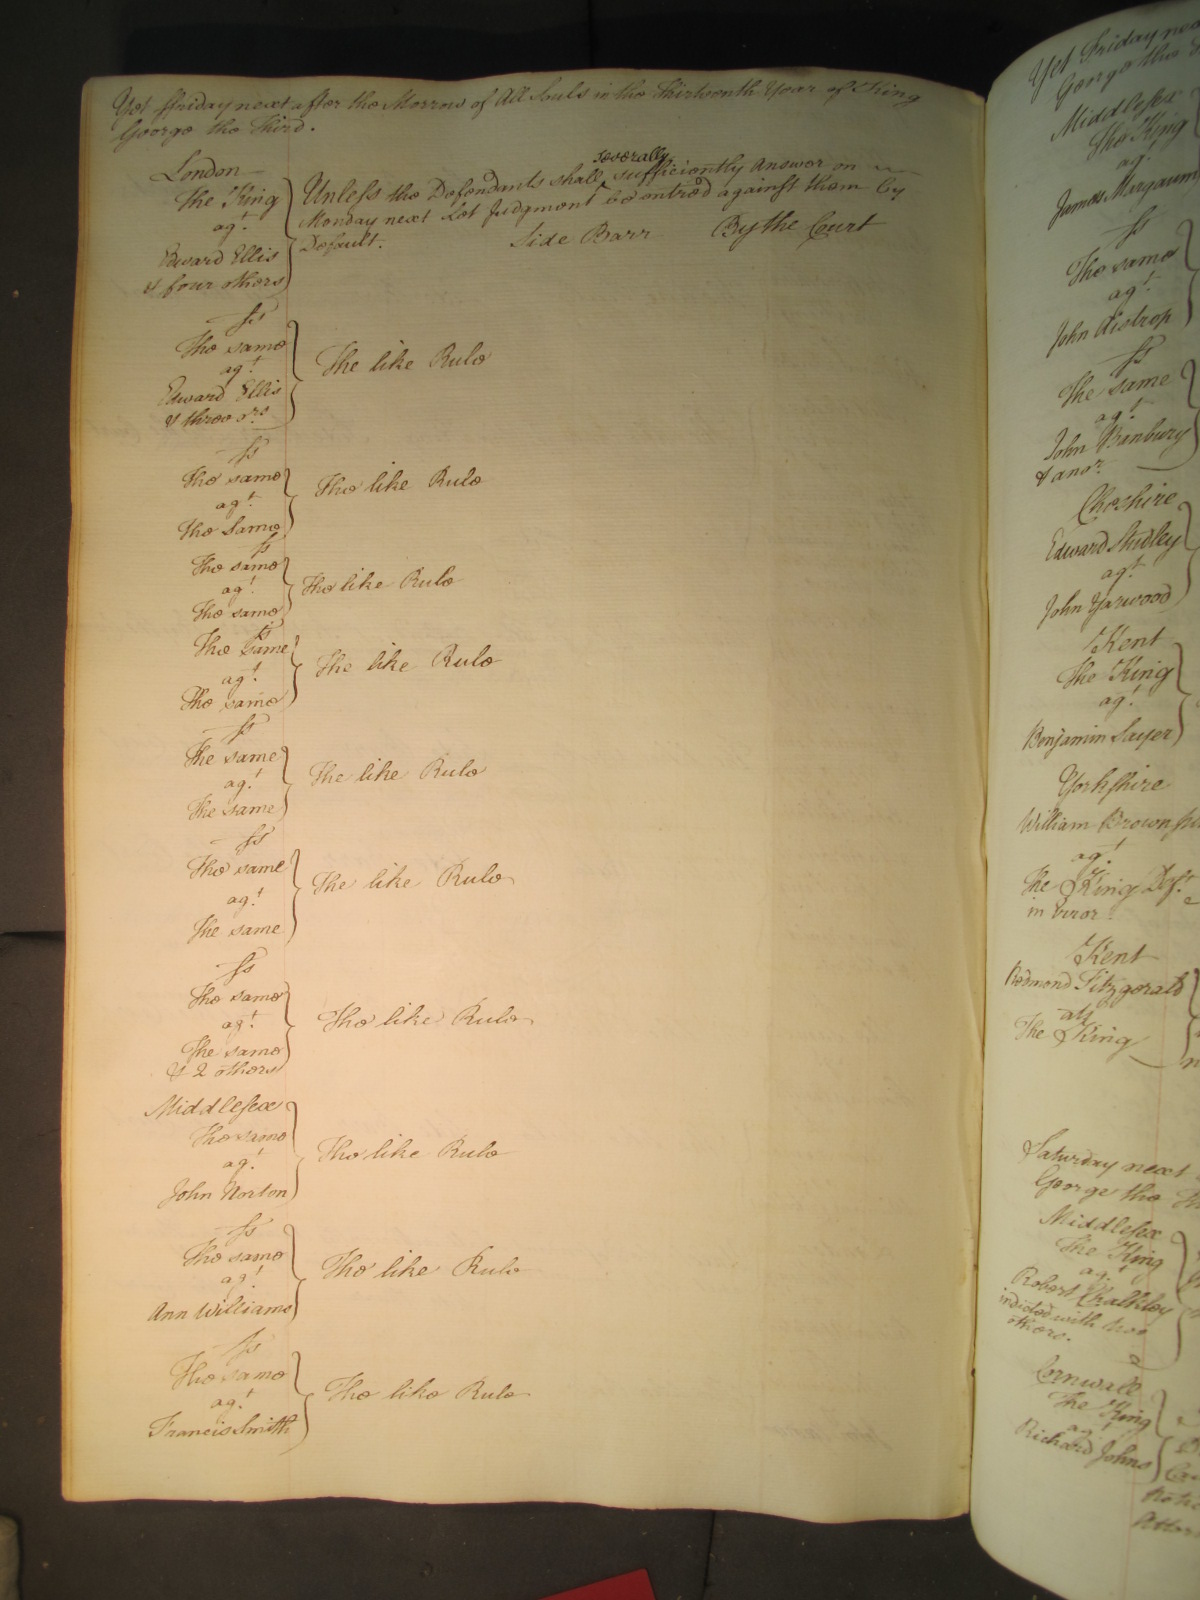 Yet ffriday next after the Morrow of All Souls in the Thirteenth Year of King
George the Third.
London
The King
agt.
Edward Ellis
& four others
Unless the Defendants shall severally sufficiently Answer on
Monday next Let Judgment be entred against them by
Default.
Side Barr By the Court
ss
The same
agt.
Edward Ellis
& three ors.
The like Rule
ss
The same
agt.
The Same
The like Rule
ss
The same
agt.
The same
The like Rule
ss
The Same
agt.
The same
The like Rule
ss
The same
agt.
The same
The like Rule
ss
The same
agt.
The same
The like Rule
ss
The same
agt.
The same
& 2 others
The like Rule
Middlesex
The same
agt.
John Norton
The like Rule
ss
The same
agt.
Ann Williams
The like Rule
ss
The same
agt.
Francis Smith
The like Rule
Yet Friday next
George the
Middlesex
The King
agt.
James
ss
The same
agt.
John Aistrop
ss
The same
agt.
John Banbury
& anor.
Cheshire
Edward Studley
agt.
John Yarwood
Kent
The King
agt.
Benjamin Sayer
Yorkshire
William Brown
agt.
The King Deft.
in Error
Kent
Redmond Fitzgerald
ats
The King
Saturday next
George the
Middlesex
The King
agt.
Robert Chalkley
indicted with two
others.
Cornwall
The King
agt.
Richard Johns